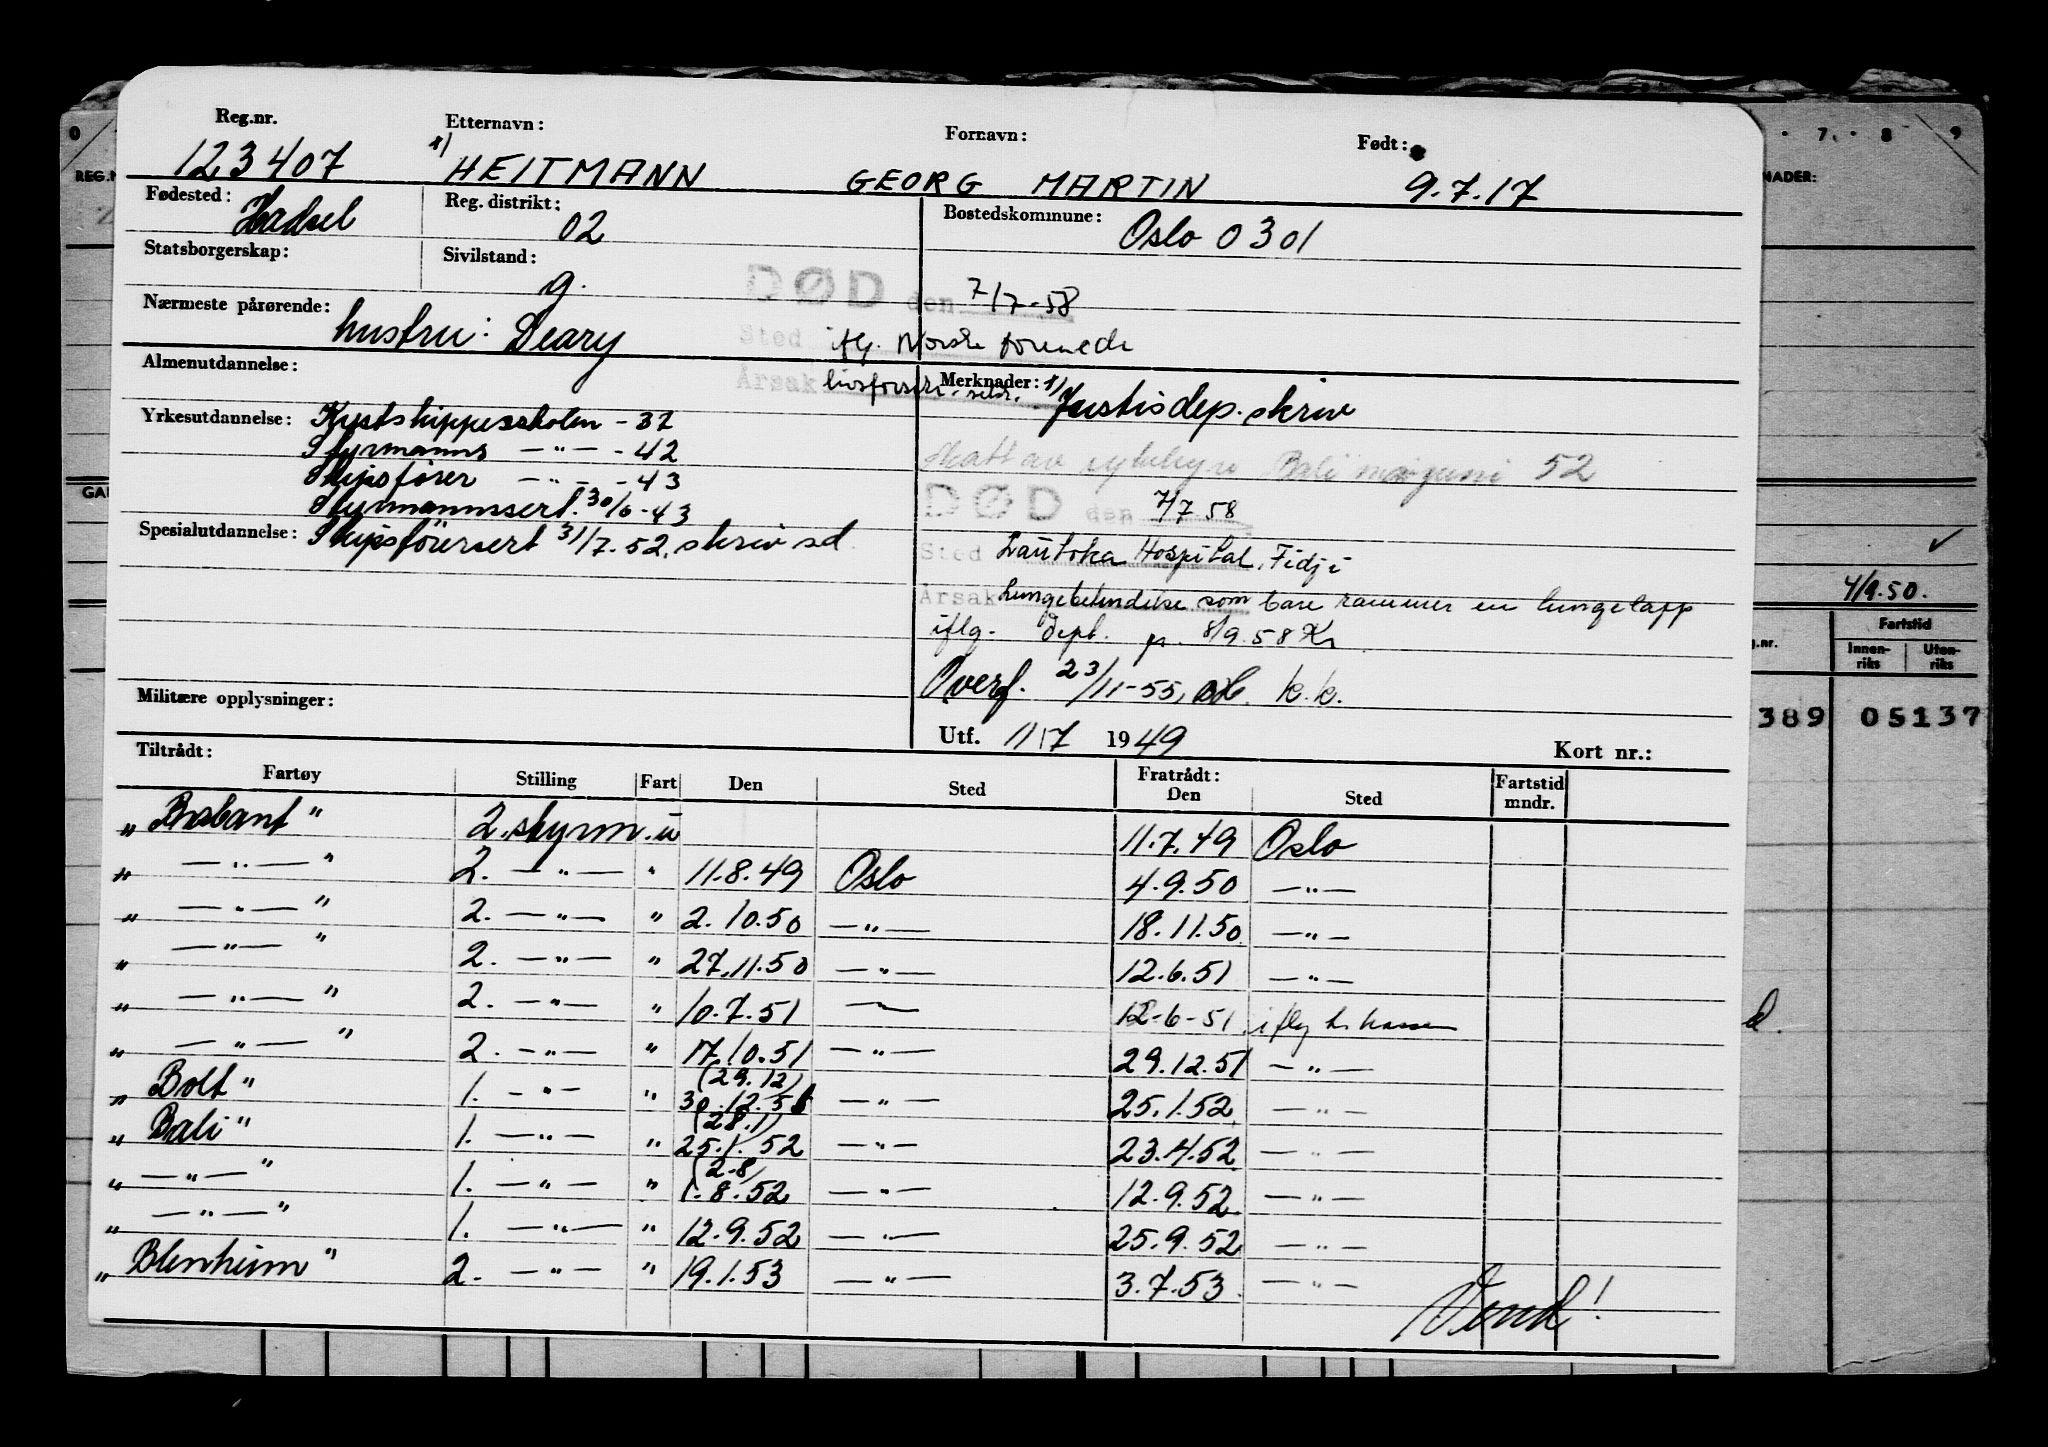 Reg.nr. Etternavn: Fornavn: Født:
123407 1/ HEITMANN GEORG MARTIN 9.7.17
Fødested: Hadsel Reg. distrikt: 02 Bostedskommune: Oslo 0301
Statsborgerskap: Sivilstand: g.
DØD den 7/7-58
Nærmeste pårørende: hustru: Deary
Sted iflg. Norske forenede
Årsak livsforsikr. selsk.
Almenutdannelse:
Merknader: 1/ Justisdep. skriv
Yrkesutdannelse: Kystskipperskolen - 37
Styrmanns —"— - 42
Skipsfører —"— - 43
Styrmannssert. 30/6-43
Spesialutdannelse: Skipsførersert 31/7.52. skriv sd
Skatt av Bali 52
DØD den 7/7 58
Sted Lautoka Hospital, Fidji
Årsak Lungebetendelse som bare rammer en lungelapp
iflg. dept. 8/9.58 Kr
Overf. 23/11-55, k.k.
Militære opplysninger:
Utf. 11/7 1949 Kort nr.:
Tiltrådt: Fratrådt:
Fartøy Stilling Fart Den Sted Den Sted Fartstid mndr.
" Brabant " 2. styrm. u 11.7.49 Oslo
" —"— " 2. —"— " 11.8.49 Oslo 4.9.50 —"—
" —"— " 2. —"— " 2.10.50 —"— 18.11.50 —"—
" —"— " 2. —"— " 27.11.50 —"— 12.6.51 —"—
" —"— " 2. —"— " 10.7.51 —"— 12-6-51 iflg
" —"— " 2. —"— " 17.10.51 —"— 29.12.51 —"—
(29.12)
" Bolt " 1. —"— " 30.12.51 —"— 25.1.52 —"—
(28.1)
" Bali " 1. —"— " 25.1.52 —"— 23.4.52 —"—
(2-8)
" —"— " 1. —"— " 1.8.52 —"— 12.9.52 —"—
" —"— " 1. —"— " 12.9.52 —"— 25.9.52 —"—
" Blenheim " 2. —"— " 19.1.53 —"— 3.7.53 —"—
Vend!
0 7 8 9
REG.N
NADER:
GA
4/9.50.
Fartstid
g.nr. Innen-riks Uten-riks
389 05137
d.